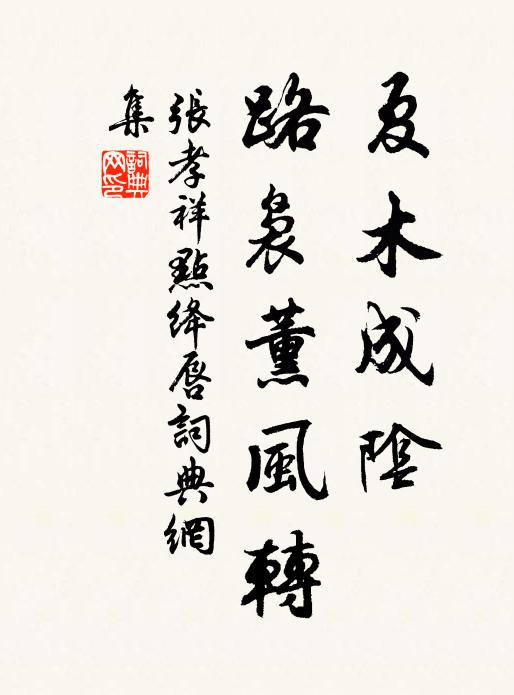 夏木成陰
路裊薰風轉
張孝祥點絳唇詞典網
集
詞典
网印